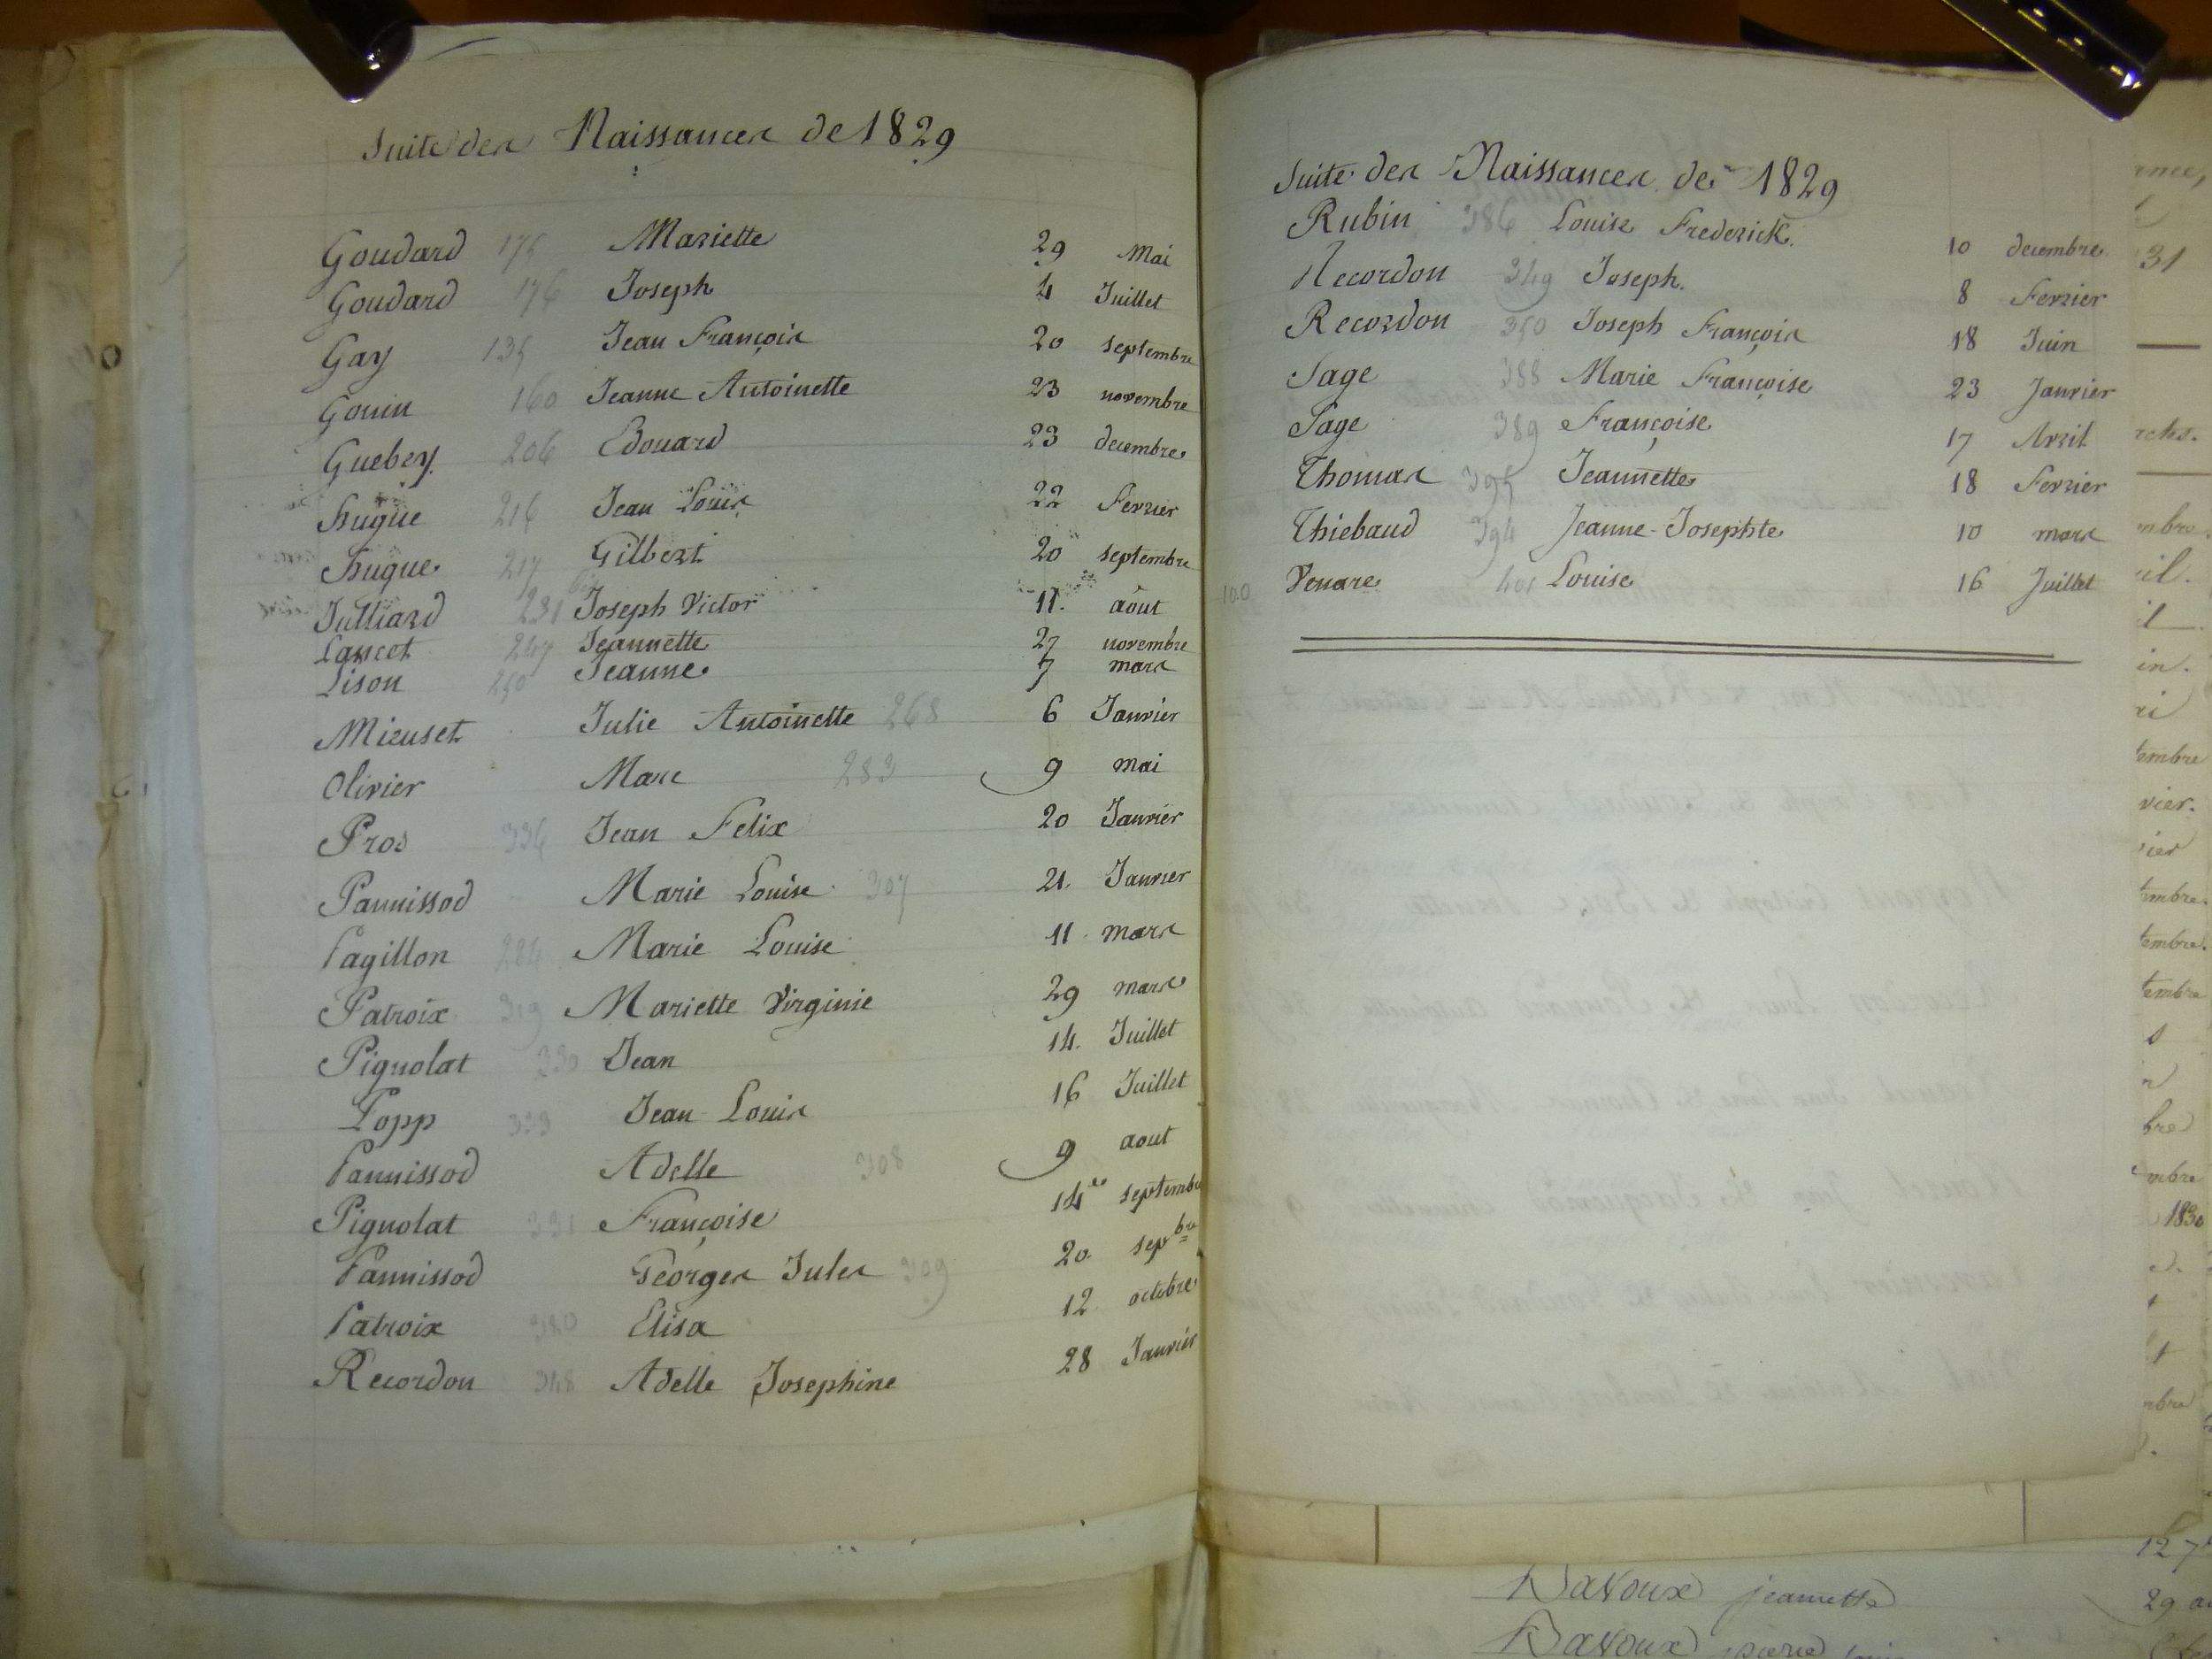 Suite des Naissances de 1829
Goudard 175 Mariette 29 Mai
Goudard 176 Joseph 4 Juillet
Gay 135 Jean François 20 septembre
Gouin 160 Jeanne Antoinette 23 novembre
Guebey 206 Edouard 23 decembre
hugue 216 Jean Louis 22 Fevrier
hugue 217 Gilbert 20 septembre
Julliard 231 Joseph Victor 11. aôut
Lancet 247 Jeannette 27 novembre
Lison 250 Jeanne 7 mars
Mieuset Julie Antoinette 268 6 Janvier
Olivier Marc 283 9 mai
Pros 336 Jean Felix 20 Janvier
Pannissod Marie Louise 307 21. Janvier
Pagillon 284 Marie Louise 11 mars
Patroix 319 Mariette Virginie 29 mars
Pignolat 330 Jean 14. Juillet
Popp 333 Jean Louis 16 Juillet
Pannissod Adelle 308 9 aout
Pignolat 331 Françoise 14 septembre
Pannissod Georges Jules 309 20 sepbre
Patroix 320 Elisa 12 octobre
Recordon 348 Adelle Josephine 28 Janvier
Suite des Naissances de 1829
Rubin 386 Louise Frederick. 10 decembre
Recordon 349 Joseph. 8 Fevrier
Recordon 350 Joseph François 18 Juin
Sage 388 Marie Françoise 23 Janvier
Sage 389 Françoise 17 Avril
Thomas 395 Jeannette 18 Fevrier
Thiebaud 394 Jeanne-Josephte 10 mars
100 Venare 401 Louise 16 Juillet
31
1830
Davoux jeannette 29
Davoux pierre louis